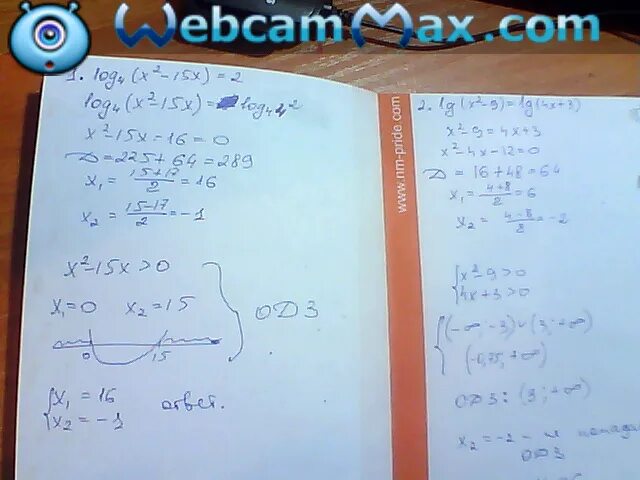 WebcamMax.com
1. log₄(x²-15x)=2
log₄(x²-15x)= log₄4²
x²-15x-16=0
D=225+64=289
x₁= (15+17)/2 =16
x₂= (15-17)/2 =-1
x²-15x>0
x₁=0 x₂=15
ОДЗ
0 15
{x₁=16
{x₂=-1
ответ.
www.nm-pride.com
2. lg(x²-9)=lg(4x+3)
x²-9=4x+3
x²-4x-12=0
D=16+48=64
x₁= (4+8)/2 =6
x₂= (4-8)/2 =-2
{x²-9>0
{4x+3>0
{(-∞,-3)∪(3;+∞)
(-0,75,+∞)
ОДЗ: (3;+∞)
x₂=-2 - не
ОДЗ